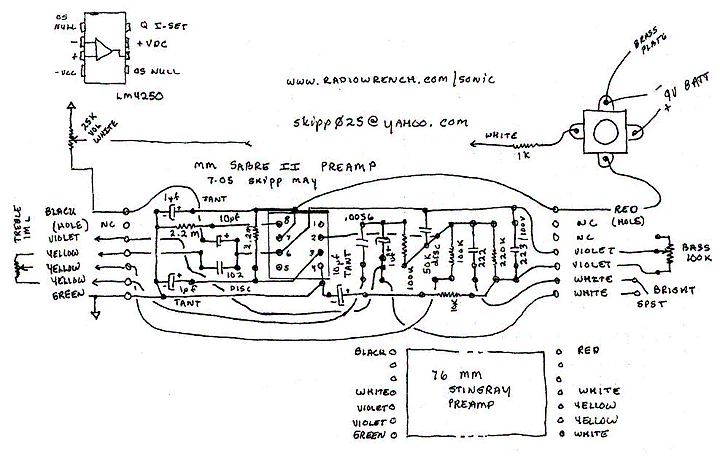 OS NULL
Q I-SET
-
+VDC
+
-VCC
OS NULL
LM4250
BRASS PLATE
- 9V BATT +
WWW.RADIOWRENCH.COM/SONIC
skippØ25@YAHOO.COM
25K VOL WHITE
WHITE
1K
MM SABRE II PREAMP
7-05 SKIPP MAY
TREBLE 1M L
BLACK
(HOLE) NC
VIOLET
YELLOW
YELLOW
YELLOW
GREEN
1µF TANT
2.2m
10pf
2.2m
102
DISC
1µF
TANT
8 1
7 2
6 3
5 4
.0056
10µF TANT
1µF
100K
50K DISC
100K
222
220K
223 100V
10K
RED
NC (HOLE)
NC
VIOLET
VIOLET
WHITE
WHITE
BASS 100K
BRIGHT
SPST
BLACK
WHITE
VIOLET
VIOLET
GREEN
76 MM
STINGRAY
PREAMP
RED
WHITE
YELLOW
YELLOW
WHITE